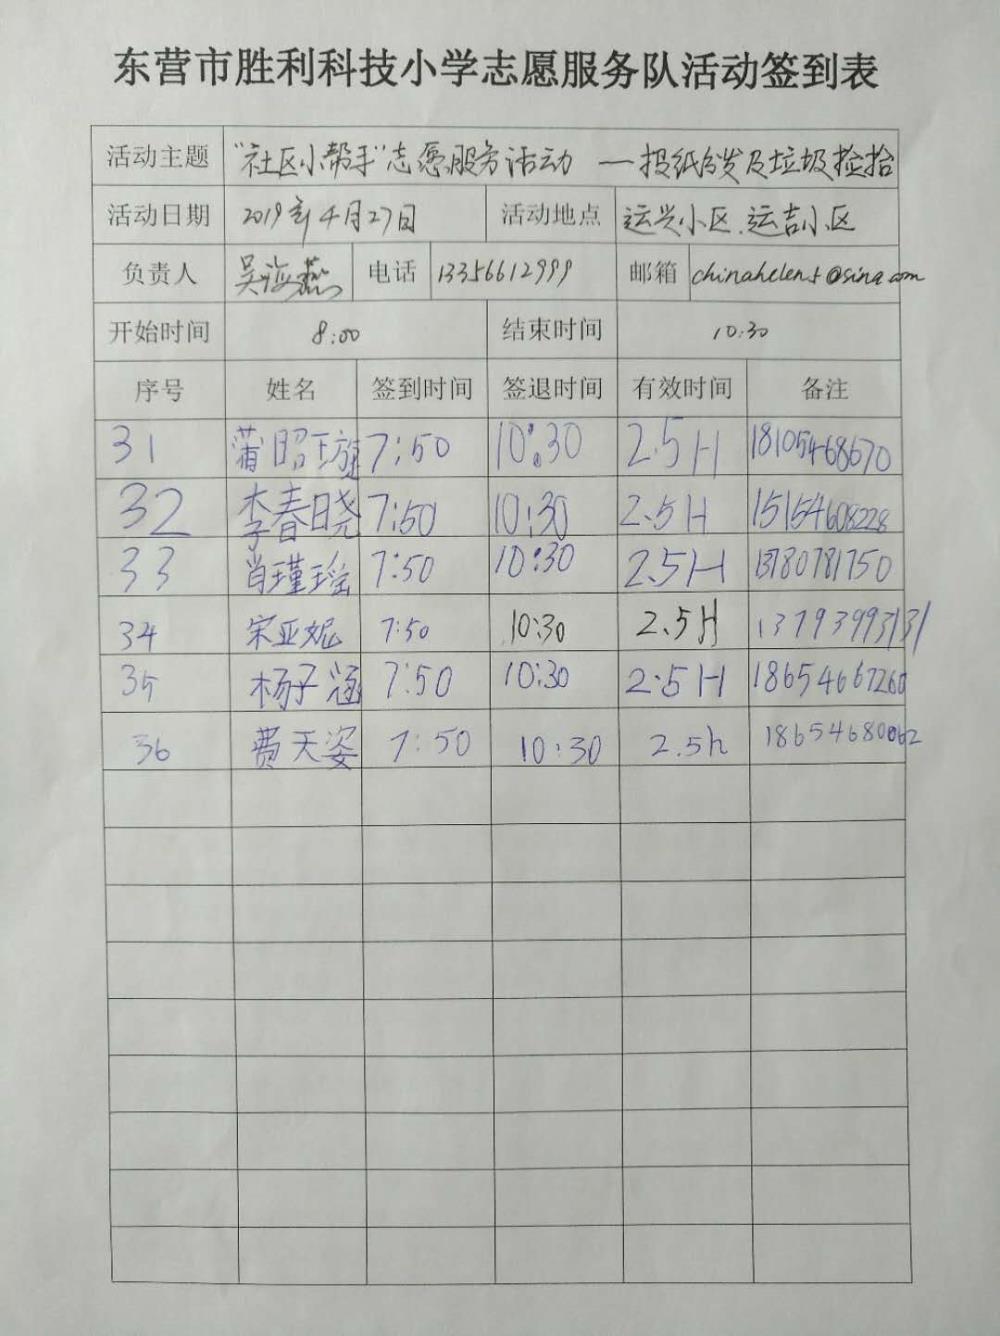 东营市胜利科技小学志愿服务队活动签到表
活动主题 "社区小帮手"志愿服务活动 —报纸分发及垃圾捡拾
活动日期 2019年4月27日 活动地点 运兴小区、运吉小区
负责人 吴海燕 电话 13356612999 邮箱 chinahelens@sina.com
开始时间 8:00 结束时间 10:30
序号 姓名 签到时间 签退时间 有效时间 备注
31 蒲昭璇 7:50 10:30 2.5H 18105468670
32 李春晓 7:50 10:30 2.5H 15154608228
33 肖瑾瑶 7:50 10:30 2.5H 13780781750
34 宋亚妮 7:50 10:30 2.5H 13793993131
35 杨子涵 7:50 10:30 2.5H 18654667260
36 费天姿 7:50 10:30 2.5h 18654680062